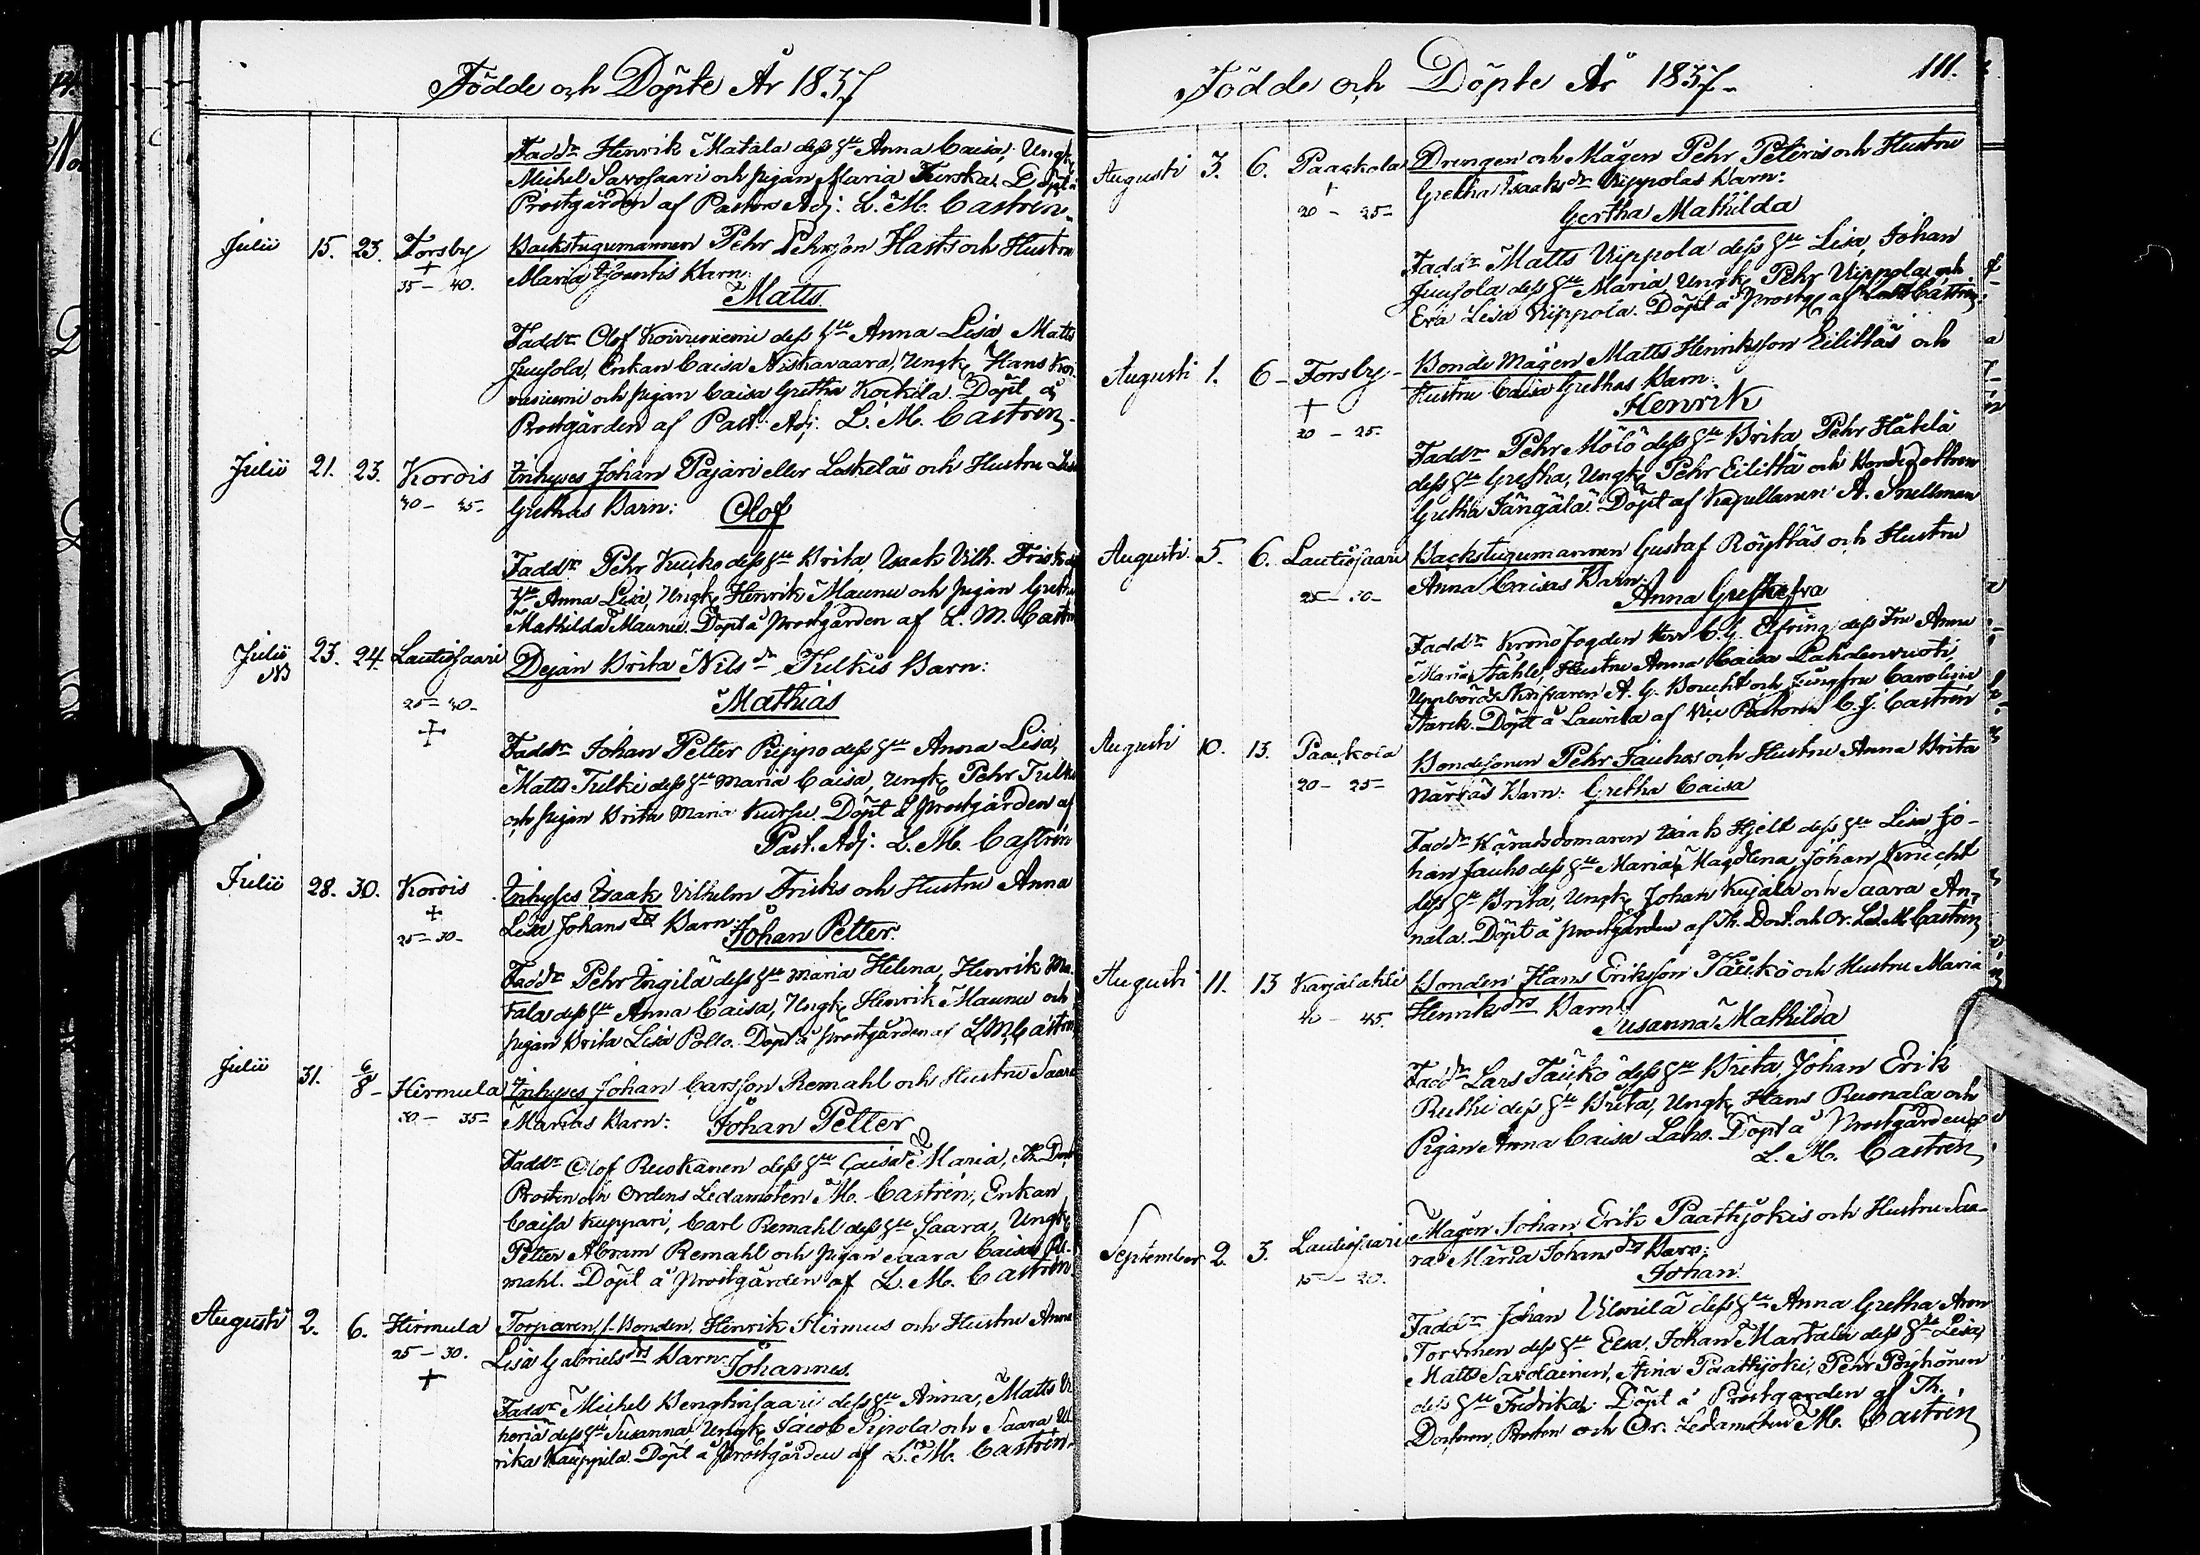 Födde och Döpte År 1837
Faddr Henrik Matala dess Hu Anna Caisa, Ungk
Michel Savosaari och pigan Maria Kurska. Döpt å
Prostgården af Pastors Adj: L. M. Castrén.
Julii 15. 23. Torsby Backstugumannen Pehr Pehrson Hasts och Hustru
+ Maria Barn:
35 – 40. Matts
Faddr Olof Koivuniemi dess Hu Anna Lisa, Matts
Juusola, Enkan Caisa Niskavaara, Ungk Hans Koi
vuniemi och pigan Caisa Gretha Kockila. Döpt å
Prostgården af Past. Adj: L. M. Castrén
Julii 21. 23. Korois Inhyses Johan Pajari eller Laskeläs och Hustru
30 – 35 Grethas Barn: Olof
Faddr Pehr Kucko dess Hu Brita, Isaak Vilh. Frisk
Hu Anna Lisa, Ungk Henrik Maunu och pigan Gretha
Mathilda Maunu. Döpt å Prostgården af L. M. Castrén
Julii 23. 24. Lautiosaari Dejan Brita Nilsdr Tulkis Barn:
25 – 30 Mathias
+
Faddr Johan Petter Pieppo dess Hu Anna Lisa,
Matts Tulki dess Hu Maria Caisa, Ungk Pehr Tulki
och pigan Brita Maria Kursu. Döpt å Prostgården af
Past. Adj: L. M. Castrén
Julii 28. 30. Korois Inhyses Isaak Vilhelm Frisks och Hustru Anna
+ Lisa Johansdrs Barn:
25 – 30 Johan Petter.
Faddr Pehr Ingilä dess Hu Maria Helena, Henrik Ma
tala dess Hu Anna Caisa, Ungk Henrik Maunu och
pigan Brita Lisa Pollo. Döpt å Prostgården af L M Castrén
Julii 31. 6/8 – Hirmula Inhyses Johan Carsson Remahl och Hustru Saara
30 – 35 Marias Barn: Johan Petter
Faddr Olof Ruokanen dess Hu Caisa Maria, Th. Doct
Prosten och Ordens Ledamoten M. Castrén, Enkan
Caisa Kuppari, Carl Remahl dess Hu Saara, Ungk
Petter Abram Remahl och pigan Saara Caisa Re-
mahl. Döpt å Prostgården af L. M. Castrén.
Augusti 2. 6. Hirmula Torparen, f. Bonden, Henrik Hirmus och Hustru Anna
25 – 30. Lisa Gabrielsdrs Barn:
+ Johannes.
Faddr Michel Hengkisaari dess Hu Anna, Matts
heriä dess Hu Susanna, Ungk Jacob Sipola och Saara Ul
rika Kauppila. Döpt å Prostgården af L. M. Castrén.
Födde och Döpte År 1837. 111.
Augusti 3. 6. Paackola Drengen och Mågen Pehr Peteris och Hustru
Gretha Isaaksdr Uippolas Barn:
20 – 25 Gertha Mathilda
Faddr Matts Uippola dess Hu Lisa, Johan
Juusola dess Hu Maria, Ungk Pehr Uippola och
Eva Lisa Uippola. Döpt å Prostg. af Castrén
Augusti 1. 6 – Torsby – Bonde Mågen Matts Henriksson Eilittäs och
+ Hustru Caisa Grethas Barn:
20 – 25 Henrik
Faddr Pehr Mölö dess Hu Brita, Pehr Hätelä
dess Hu Gretha, Ungk Pehr Eilittä och Bondedottren
Gretha Jängälä. Döpt af Kapellanen A. Snellman
Augusti 5. 6. Lautiosaari Backstugumannen Gustaf Röyttäs och Hustru
25 – 30 Anna Caisas Barn:
Anna Greta Eva
Faddr Kronofogden Herr C. G. Elfving dess Fru Anna
Maria Ståhle, Hustru Anna Caisa Lahdenvuoti,
Uppbördsskrifvaren A. G. Boucht och Jungfru Carolina
Starck. Döpt å Laurila af Vice Pastorn C. J. Castrén
Augusti 10. 13. Paackola Bondesonen Pehr Jauhos och Hustru Anna Brita
20 – 25 Närräs Barn: Gretha Caisa
Faddr Häradsdomaren Isaak Hjelt dess Hu Lisa, Jo-
han Jauho dess Hu Maria Magdlena, Johan Knecht
dess Hu Brita, Ungk Johan Kujala och Saara An-
nala. Döpt å Prostgården af Th. Doct. och Or. Led. M. Castrén
Augusti 11. 13 Karjalahti Bonden Hans Eriksson Täikkö och Hustru Maria
40 – 45. Henriksdrs Barn:
Susanna Mathilda
Faddr Lars Täikkö dess Hu Brita, Johan Erik
Ruthi dess Hu Brita, Ungk Hans Ruonala och
Pigan Anna Caisa Laho. Döpt å Prostgården af
L. M. Castrén
September 2. 3. Lautiosaari Mågen Johan Erik Paattijokis och Hustru Saa-
15 – 20. ra Maria Johansdrs Barn:
Johan
Faddr Johan Vilmilä dess Hu Anna Gretha, Aron
Torvinen dess Hu Elsa, Johan Martala dess Hu Lisa,
Matts Savolainen, Stina Paattijoki, Pehr Pöyhönen
dess Hu Fredrika. Döpt å Prostgården af Th.
Doctoren, Prosten och Or. Ledamoten M. Castrén